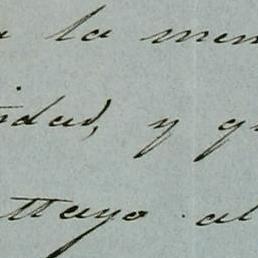 a la men
idad, y q
ttayo al